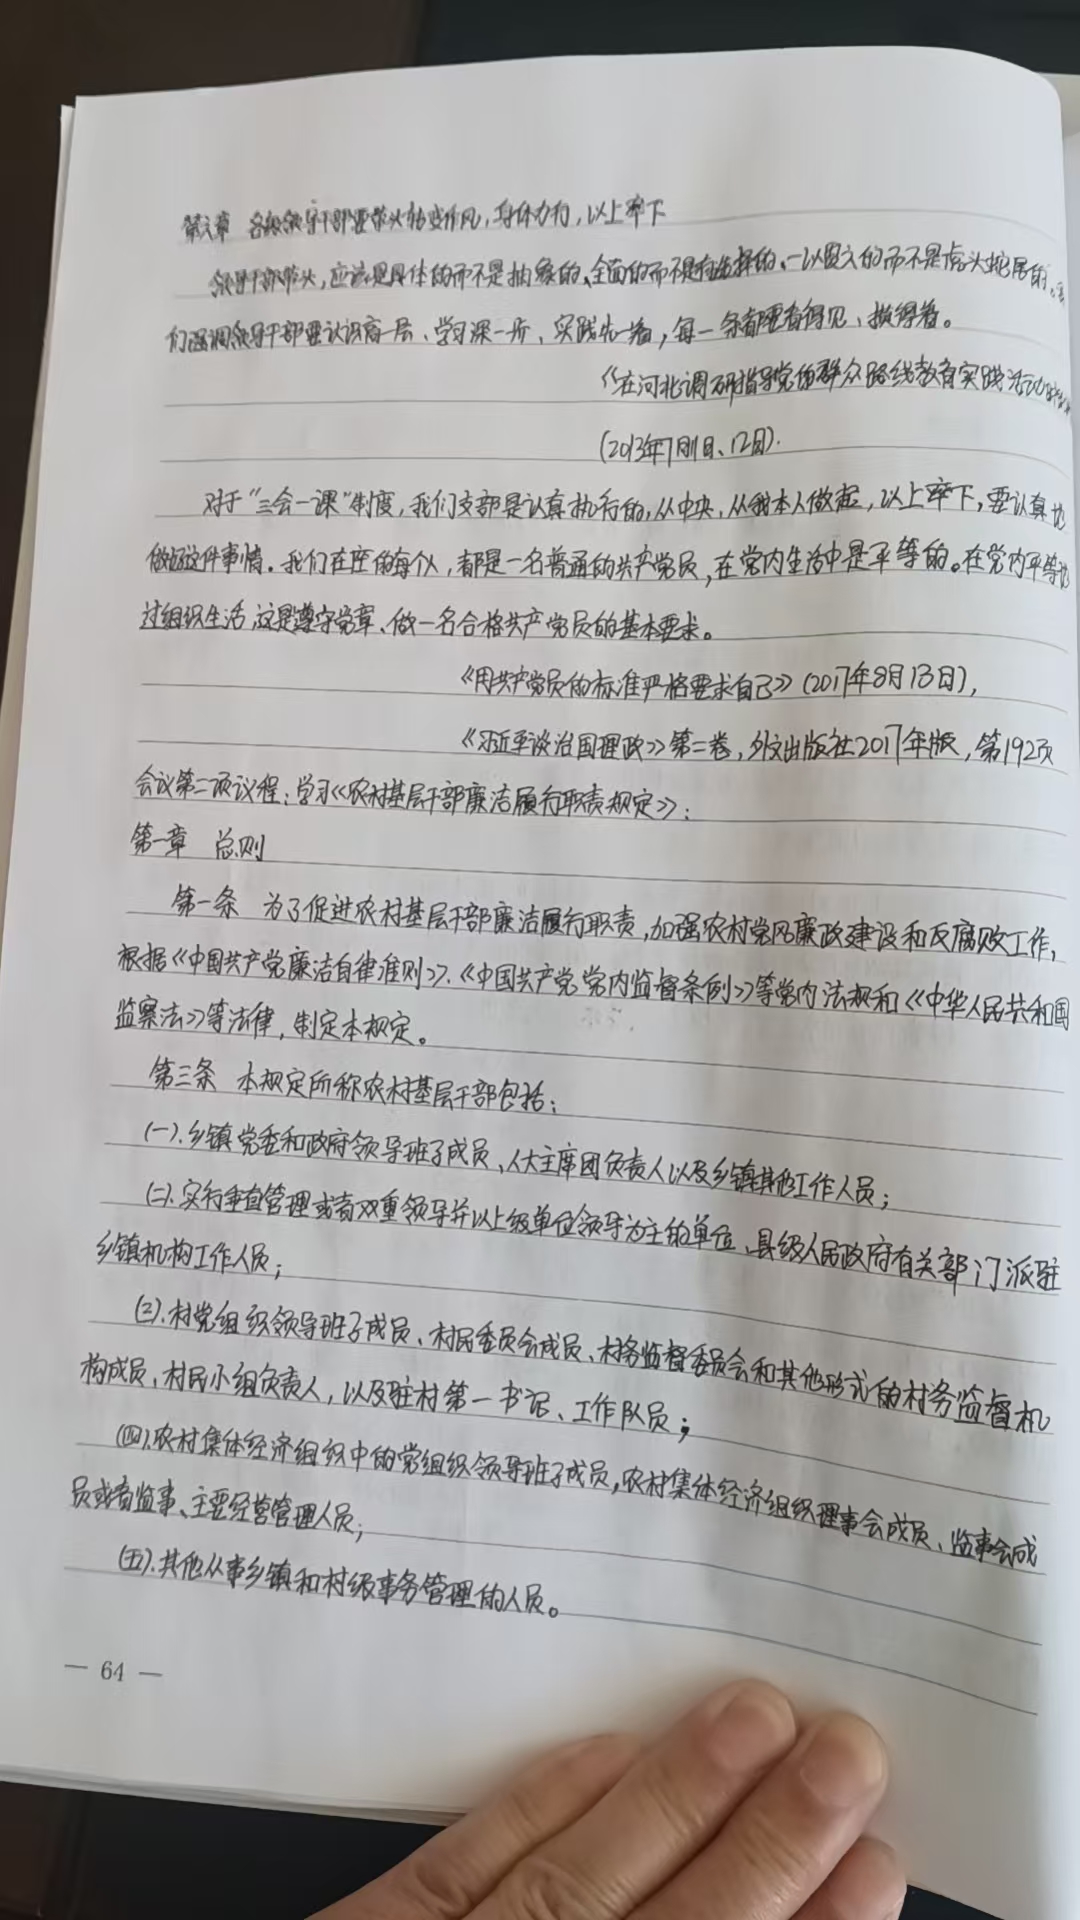 第六章 各级领导干部要带头转变作风，身体力行，以上率下
领导干部带头，应该是具体的而不是抽象的、全面的而不是有选择的、一以贯之的而不是虎头蛇尾的。我
们强调领导干部要认识高一层、学习深一步、实践先一着，每一条都要看得见、摸得着。
《在河北调研指导党的群众路线教育实践活动时的
(2013年7月11日、12日).
对于“三会一课”制度，我们支部是认真执行的，从中央，从我本人做起，以上率下，要认真地
做好这件事情。我们在座的每个人，都是一名普通的共产党员，在党内生活中是平等的。在党内平等地
过组织生活，这是遵守党章、做一名合格共产党员的基本要求。
《用共产党员的标准严格要求自己》(2017年8月13日)，
《习近平谈治国理政》第二卷，外文出版社2017年版，第192页
会议第二项议程：学习《农村基层干部廉洁履行职责规定》：
第一章 总则
第一条 为了促进农村基层干部廉洁履行职责，加强农村党风廉政建设和反腐败工作，
根据《中国共产党廉洁自律准则》、《中国共产党党内监督条例》等党内法规和《中华人民共和国
监察法》等法律，制定本规定。
第三条 本规定所称农村基层干部包括：
(一).乡镇党委和政府领导班子成员、人大主席团负责人以及乡镇其他工作人员；
(二).实行垂直管理或者双重领导并以上级单位领导为主的单位、县级人民政府有关部门派驻
乡镇机构工作人员；
(三).村党组织领导班子成员、村民委员会成员、村务监督委员会和其他形式的村务监督机
构成员、村民小组负责人，以及驻村第一书记、工作队员；
(四).农村集体经济组织中的党组织领导班子成员，农村集体经济组织理事会成员、监事会成
员或者监事、主要经营管理人员；
(五).其他从事乡镇和村级事务管理的人员。
— 64 —